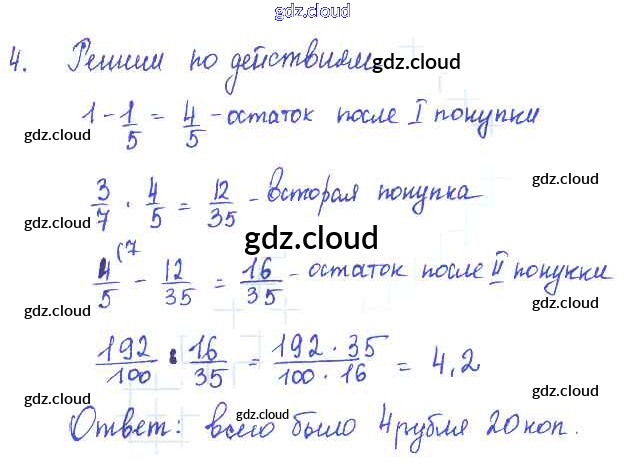 gdz.cloud
gdz.cloud
4. Решим по действиям gdz.cloud
1 - 1/5 = 4/5 - остаток после I покупки
gdz.cloud
gdz.cloud
3/7 · 4/5 = 12/35 - вторая покупка
gdz.cloud
gdz.cloud
gdz.cloud
4/5 (7 - 12/35 = 16/35 - остаток после II покупки
gdz.cloud
gdz.cloud
192/100 : 16/35 = 192 · 35/100 · 16 = 4,2
gdz.cloud
gdz.cloud
gdz.cloud
Ответ: всего было 4 рубля 20 коп.
gdz.cloud
gdz.cloud